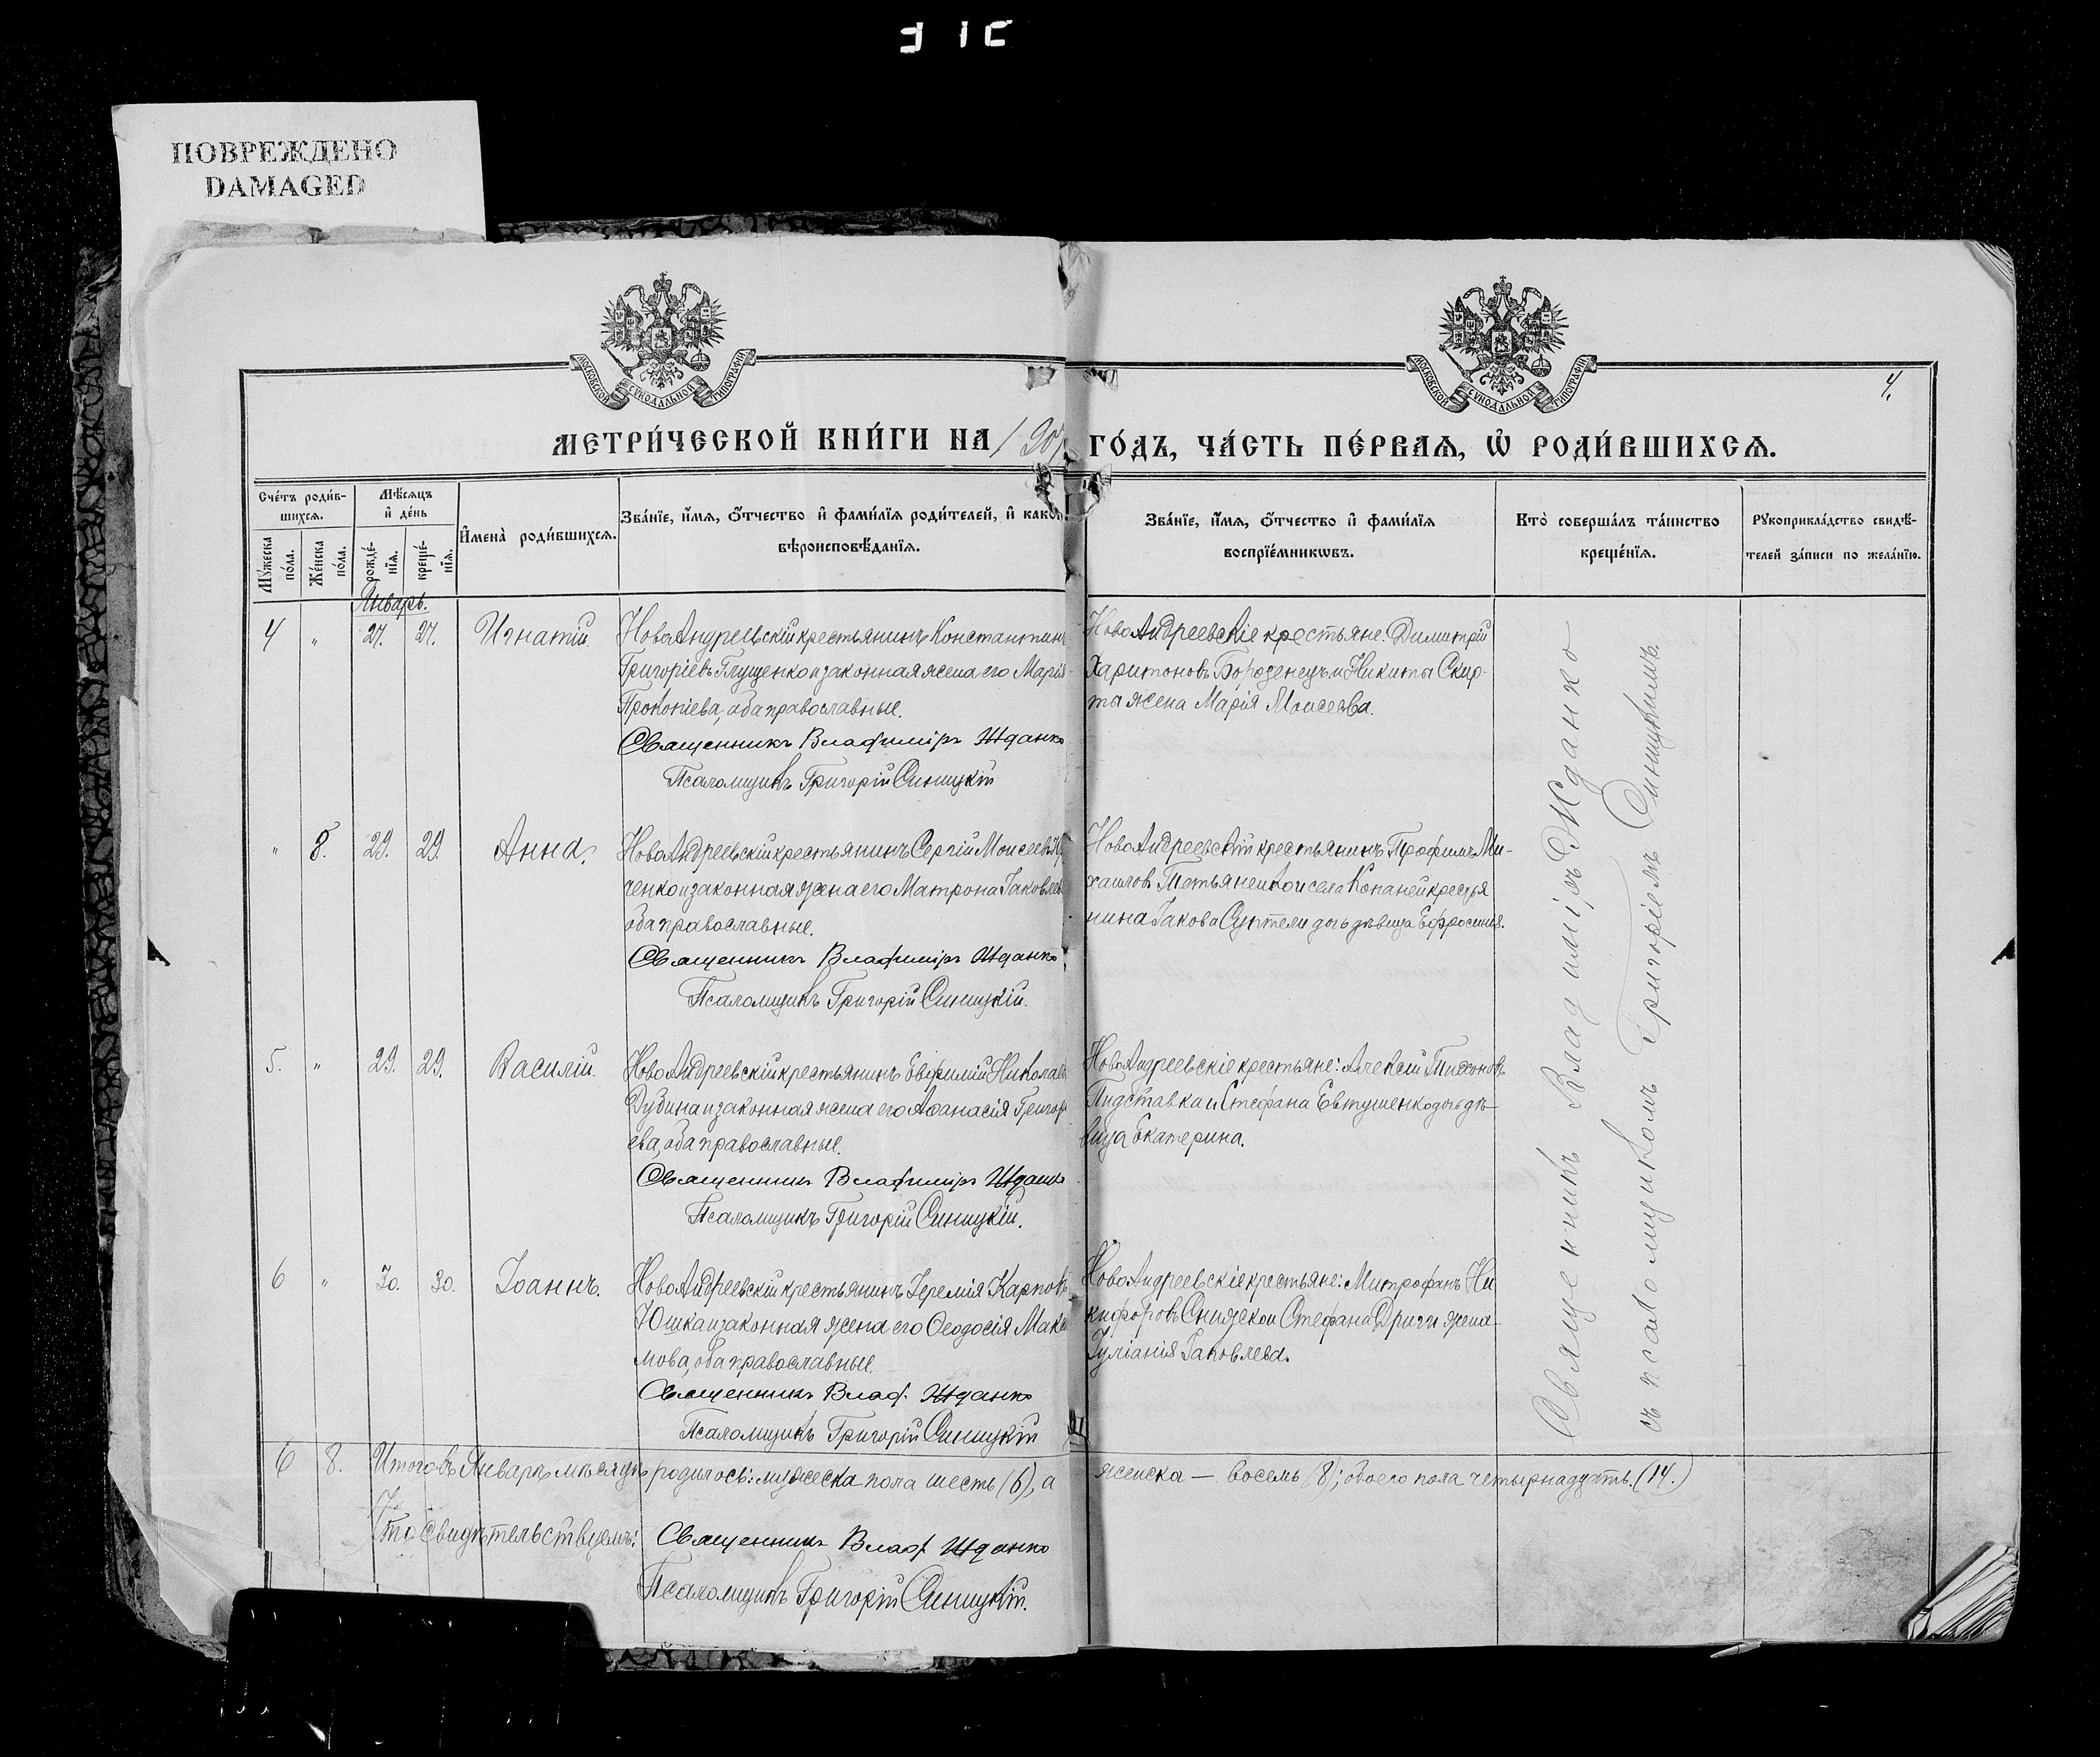 ПОВРЕЖДЕНО
DAMAGED
МОСКОВСКОЙ СѴНОДАЛЬНОЙ ТИПОГРАФІИ
МОСКОВСКОЙ СѴНОДАЛЬНОЙ ТИПОГРАФІИ
4.
МЕТРИ́ЧЕСКОЙ КНИ́ГИ НА 190
ГО́ДЪ, ЧА́СТЬ ПЕ́РВАЯ, Ѡ҆ РОДИ́ВШИХСЯ.
Сче́тъ роди́в-
шихся.
Му́жеска по́ла.
Же́нска по́ла.
Мѣ́сяцъ
и҆ де́нь
рожде́-
нїя.
креще́-
нїя.
И҆мена̀ роди́вшихся.
Зва́нїе, и҆́мя, ѻ҆́тчество и҆ фами́лїя роди́телей, и҆ како́й
вѣроисповѣ́данїя.
Зва́нїе, и҆́мя, ѻ҆́тчество и҆ фами́лїя
воспрїе́мникѡвъ.
Кто̀ соверша́лъ та́инство
креще́нїя.
Рукоприкла́дство свидѣ́-
телей за́писи по жела́нїю.
Январь.
4 " 27. 27. Игнатій.
НовоАндреевскій крестьянинъ Константинъ
Григоріевъ Глущенко и законная жена его Марія
Прокопіева, оба православные.
Священникъ Владиміръ Жданко
Псаломщикъ Григорій Синицкій
НовоАндреевскіе крестьяне: Димитрій
Харитоновъ Бороденецъ и Никиты Скир-
ты жена Марія Моисеева.
" 8. 29. 29. Анна.
НовоАндреевскій крестьянинъ Сергій Моисеевъ
ченко и законная жена его Матрона Іаковлева
оба православные.
Священникъ Владиміръ Жданко
Псаломщикъ Григорій Синицкій.
НовоАндреевскій крестьянинъ Трофимъ Ми-
хаиловъ и села Копаней крестья
нина Іакова дочь дѣвица Ефросинія.
5. " 29. 29. Василій.
НовоАндреевскій крестьянинъ Евфимій Николаевъ
Дубина и законная жена его Аѳанасія Григорі
ева, оба православные.
Священникъ Владиміръ Жданко
Псаломщикъ Григорій Синицкій.
НовоАндреевскіе крестьяне: Алексій Тихоновъ
Пидставка и Стефана Евтушенко дочь дѣ-
вица Екатерина.
6 " 30. 30. Іоаннъ.
НовоАндреевскій крестьянинъ Іеремія Карповъ
Юшка и законная жена его Ѳеодосія Макси
мова, оба православные.
Священникъ Влад. Жданко
Псаломщикъ Григорій Синицкій
НовоАндреевскіе крестьяне: Митрофанъ Ни
кифоровъ Снижко и Стефана Дриги жена
Іуліанія Іаковлева.
Священникъ Владиміръ Жданко
съ псаломщикомъ Григоріемъ Синицкимъ.
6 8. Итого въ Январѣ мѣсяцѣ родилось: мужеска пола шесть (6), а женска — восемь (8); обоего пола четырнадцать. (14.)
Что свидѣтельствуемъ:
Священникъ Влад. Жданко
Псаломщикъ Григорій Синицкій.